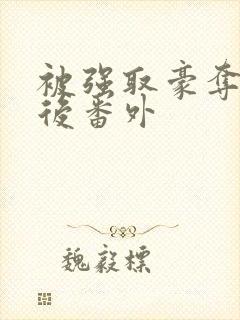 被强取豪夺
后番外
魏毅标